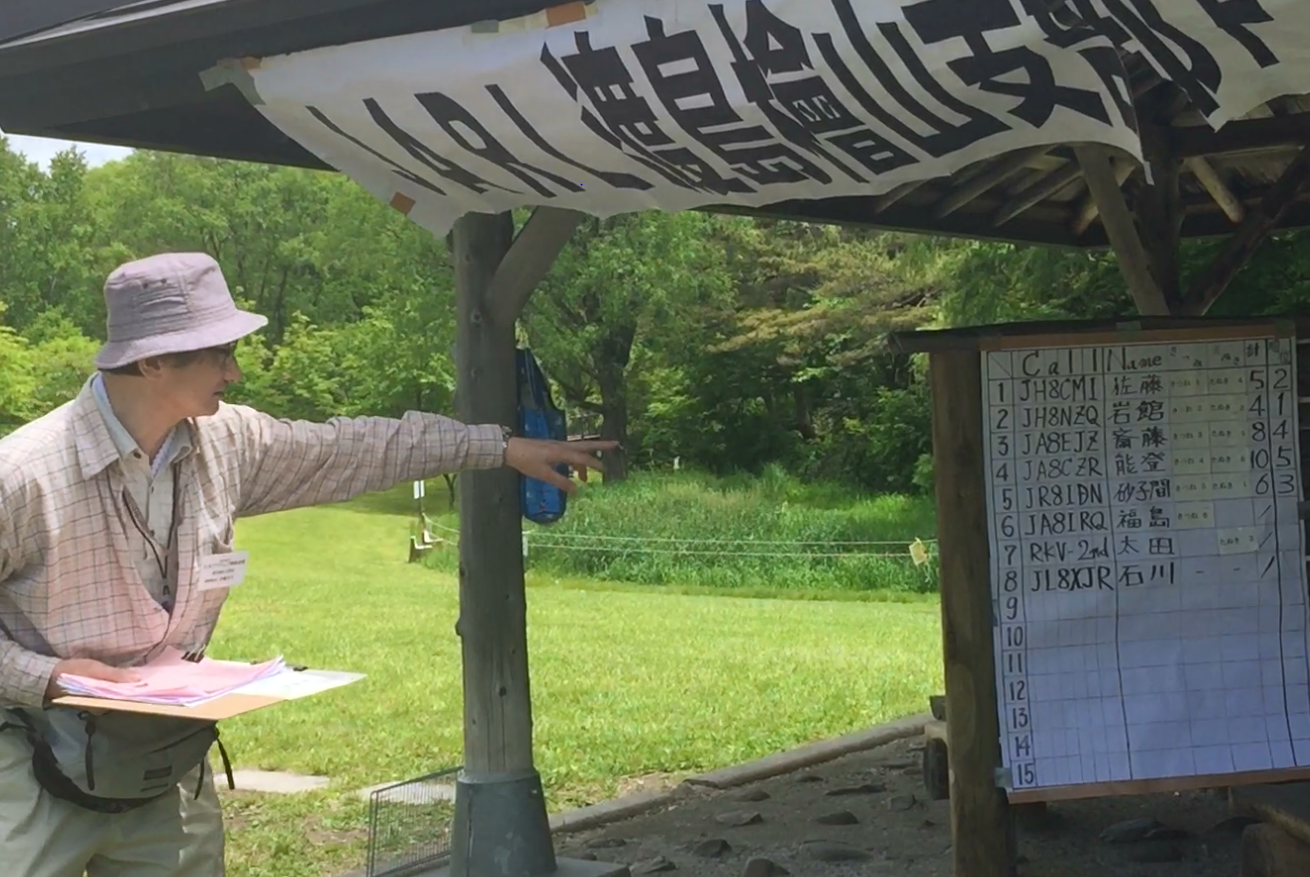 JARL渡島檜山支部
Call Name きつね たぬき 計 順位
1 JH8CMI 佐藤 5 2
2 JH8NZQ 岩館 4 1
3 JA8EJZ 斎藤 8 4
4 JA8CZR 能登 10 5
5 JR8IDN 砂子間 6 3
6 JA8IRQ 福島 きつね /
7 RKV-2nd 太田 たぬき /
8 JL8XJR 石川 - - /
9
10
11
12
13
14
15